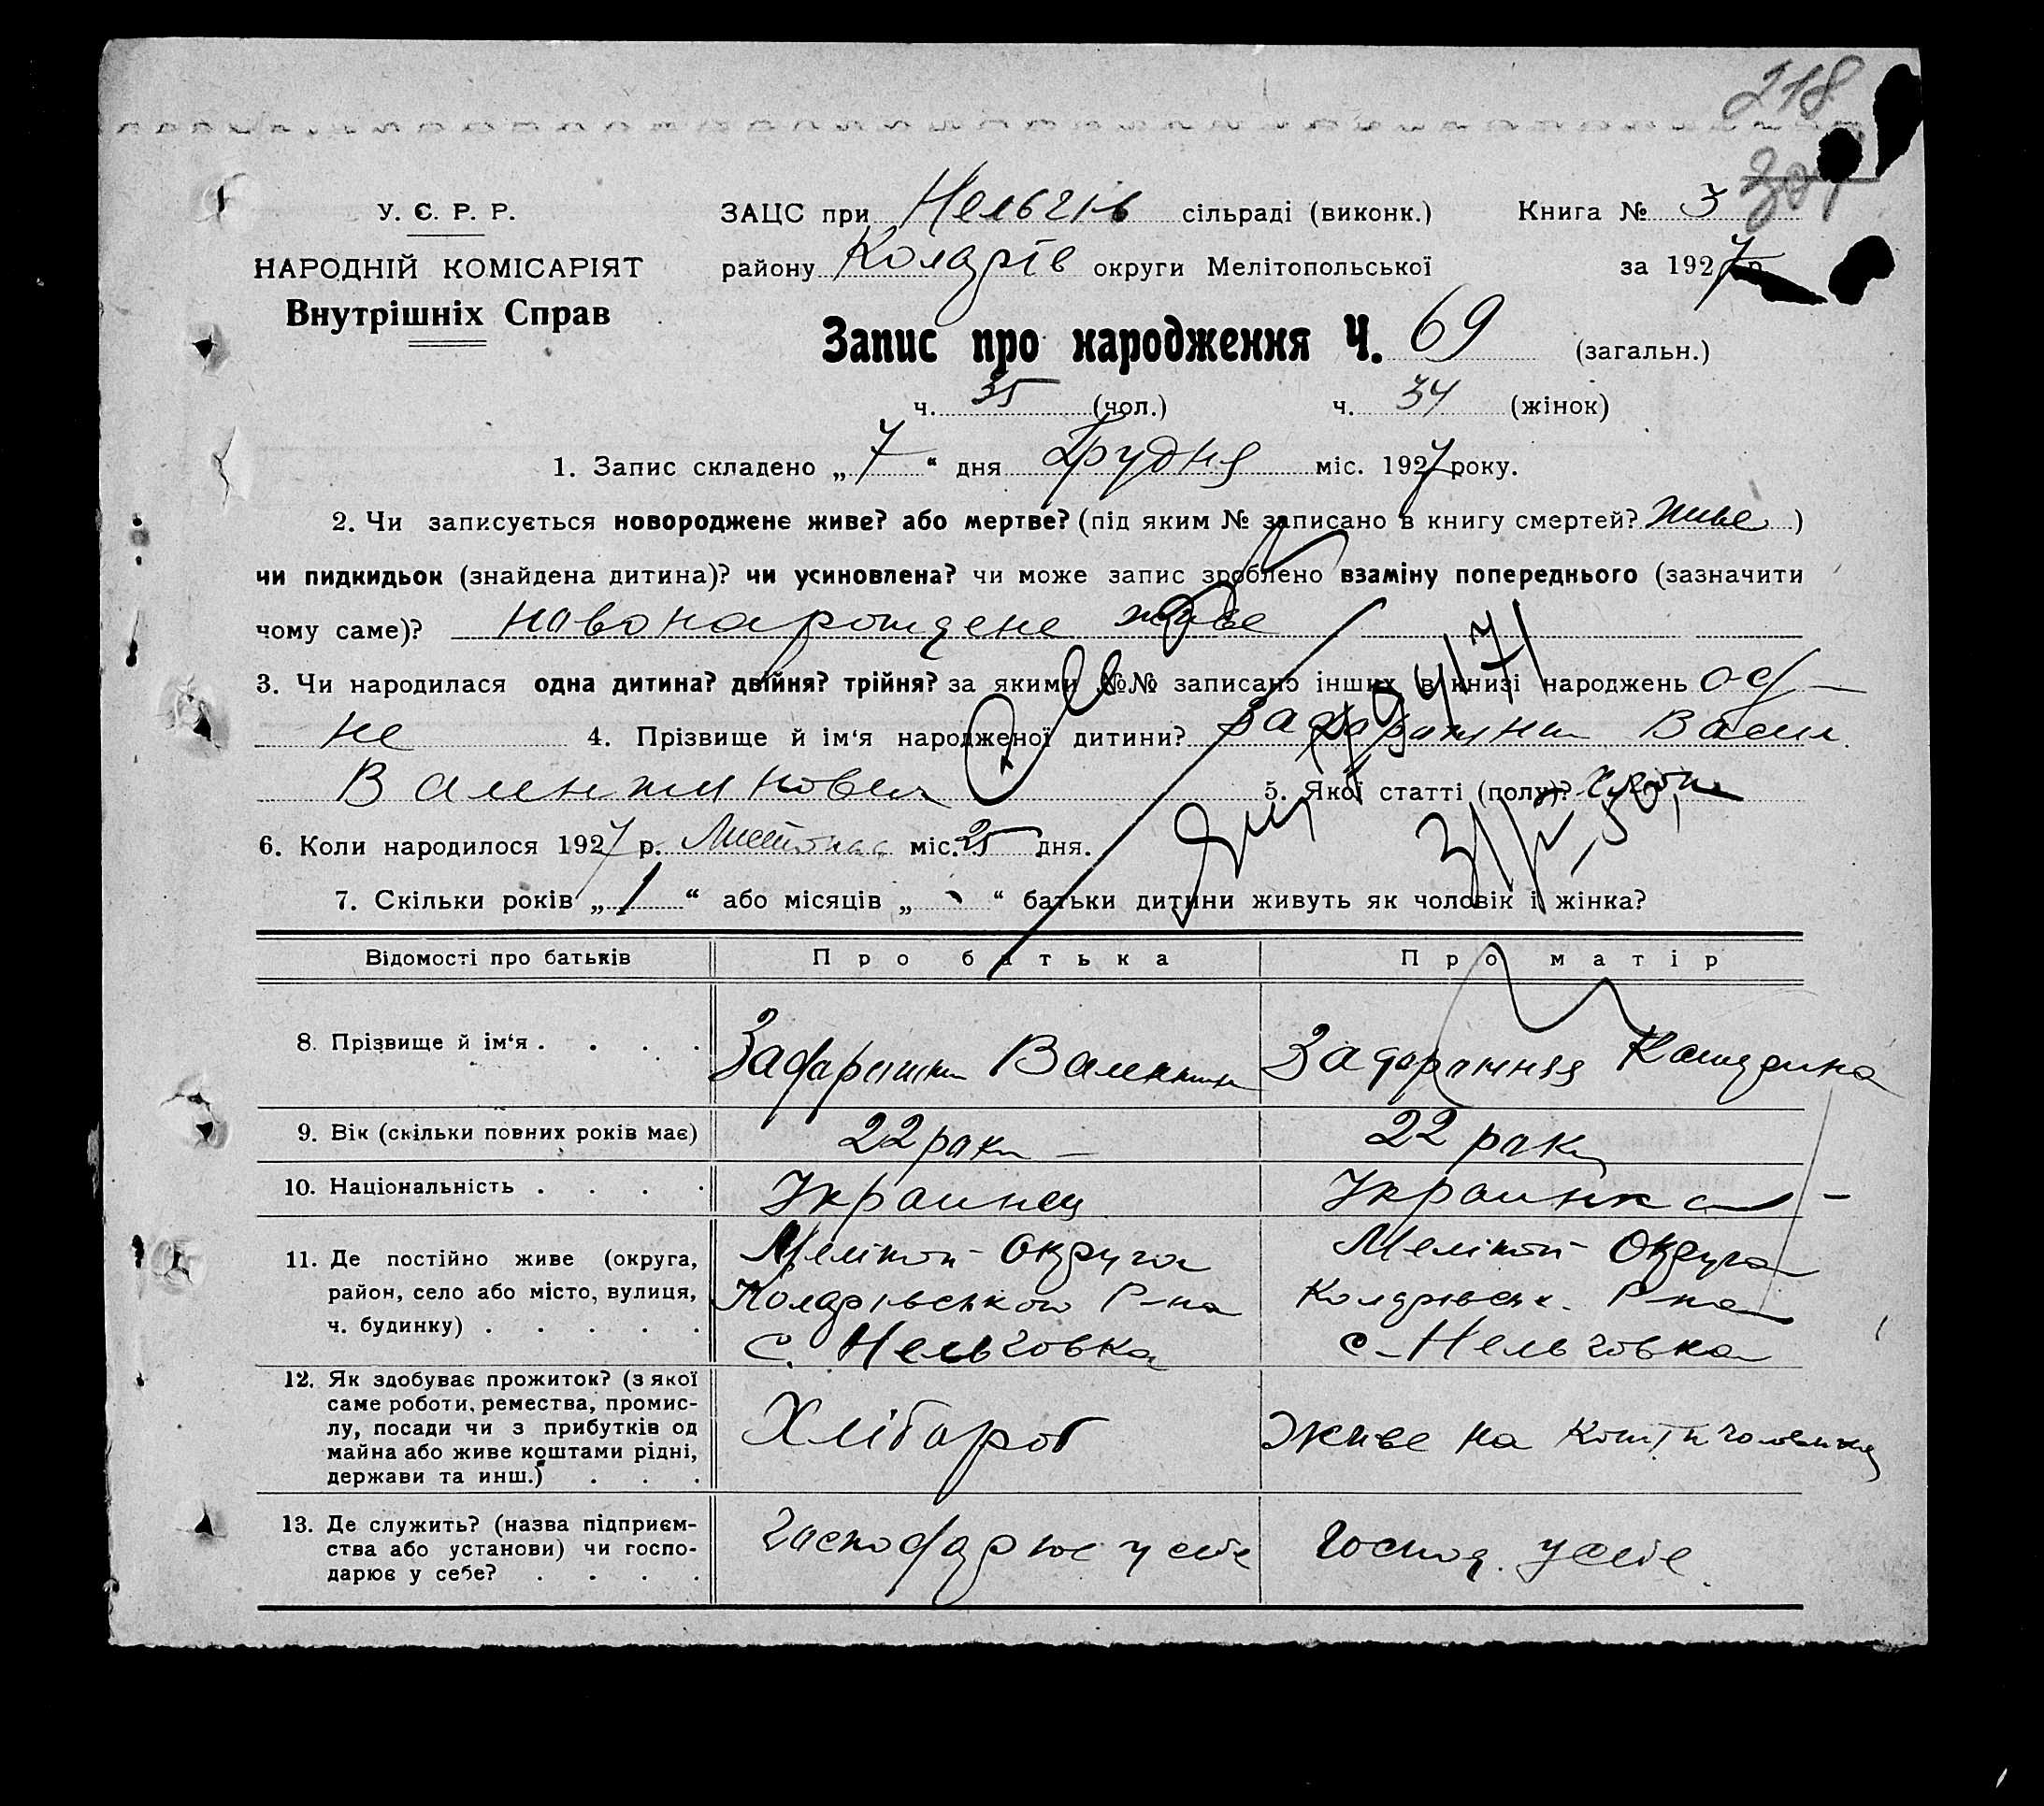 218
307
У. Є. Р. Р.
НАРОДНІЙ КОМІСАРІЯТ
Внутрішніх Справ
ЗАЦС при Нельгів сільраді (виконк.) Книга № 3
району Коларів округи Мелітопольської за 1927 р.
Запис про народження Ч. 69 (загальн.)
ч. 35 (чол.) ч. 34 (жінок)
1. Запис складено „ 7 “ дня Грудня міс. 1927 року.
2. Чи записується новороджене живе? або мертве? (під яким № записано в книгу смертей? живе )
чи пидкидьок (знайдена дитина)? чи усиновлена? чи може запис зроблено взаміну попереднього (зазначити
чому саме)? новонарождене живе
3. Чи народилася одна дитина? двійня? трійня? за якими №№ записано інших в книзі народжень од-
не 4. Прізвище й ім‘я народженої дитини? Василь
Валентинович 5. Якої статті (полу)?
6. Коли народилося 1927 р. Листопада міс. 25 дня.
7. Скільки років „ 1 “ або місяців „ - “ батьки дитини живуть як чоловік і жінка?
Відомості про батьків Про батька Про матір
8. Прізвище й ім‘я . . . . Валентин Задорожняя
9. Вік (скільки повних років має) 22 роки 22 роки
10. Національність . . . . Украинец Украинка
11. Де постійно живе (округа, Мелітоп- Округа Мелітоп- Округа
район, село або місто, вулиця, Коларівського Р-на Коларівськ. Р-на
ч. будинку) . . . . . с. Нельговка с-Нельговка
12. Як здобуває прожиток? (з якої
саме роботи, ремества, промис-
лу, посади чи з прибутків од Хлібороб Живе на кошти чоловика
майна або живе коштами рідні,
держави та инш.) . . .
13. Де служить? (назва підприєм-
ства або установи) чи госпо- господарює у себе господ. у себе.
дарює у себе? . . . .